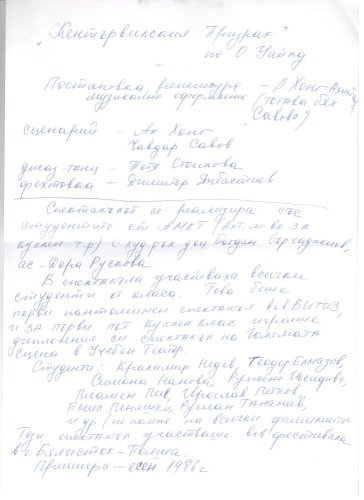 „Кентървилския Призрак"
по О. Уайлд
Постановка, режисура – А. Хонг-
музикално оформление (тогава бях
Савова)
сценарий – Ан Хонг
Чавдар Савов
джаз-танц – Петя Стойкова
фехтовка – Димитър
Спектакълът се реализира със
студентите от АМКТ (Акт. м-во за
куклен т-р) с худ. рък. доц Богдан
ас – Дора Рускова
В спектакъла участваха всички
студенти от класа. Това беше
първи пантомимен спектакъл във ВИТИЗ,
и за първи път куклен клас играеше
дипломния си спектакъл на Голямата
сцена в Учебен Театър.
Студенти: Красимир Недев, Теодор Елмазов,
Симона Нанова, Румена
Пламен Пеев, Ирослав Петков
Емил Руслан Тананеев,
и др (не помня на всички фамилиите)
Този спектакъл участваше във фестивала
в г. Бялисток – Полша.
Премиера – есен 1986 г